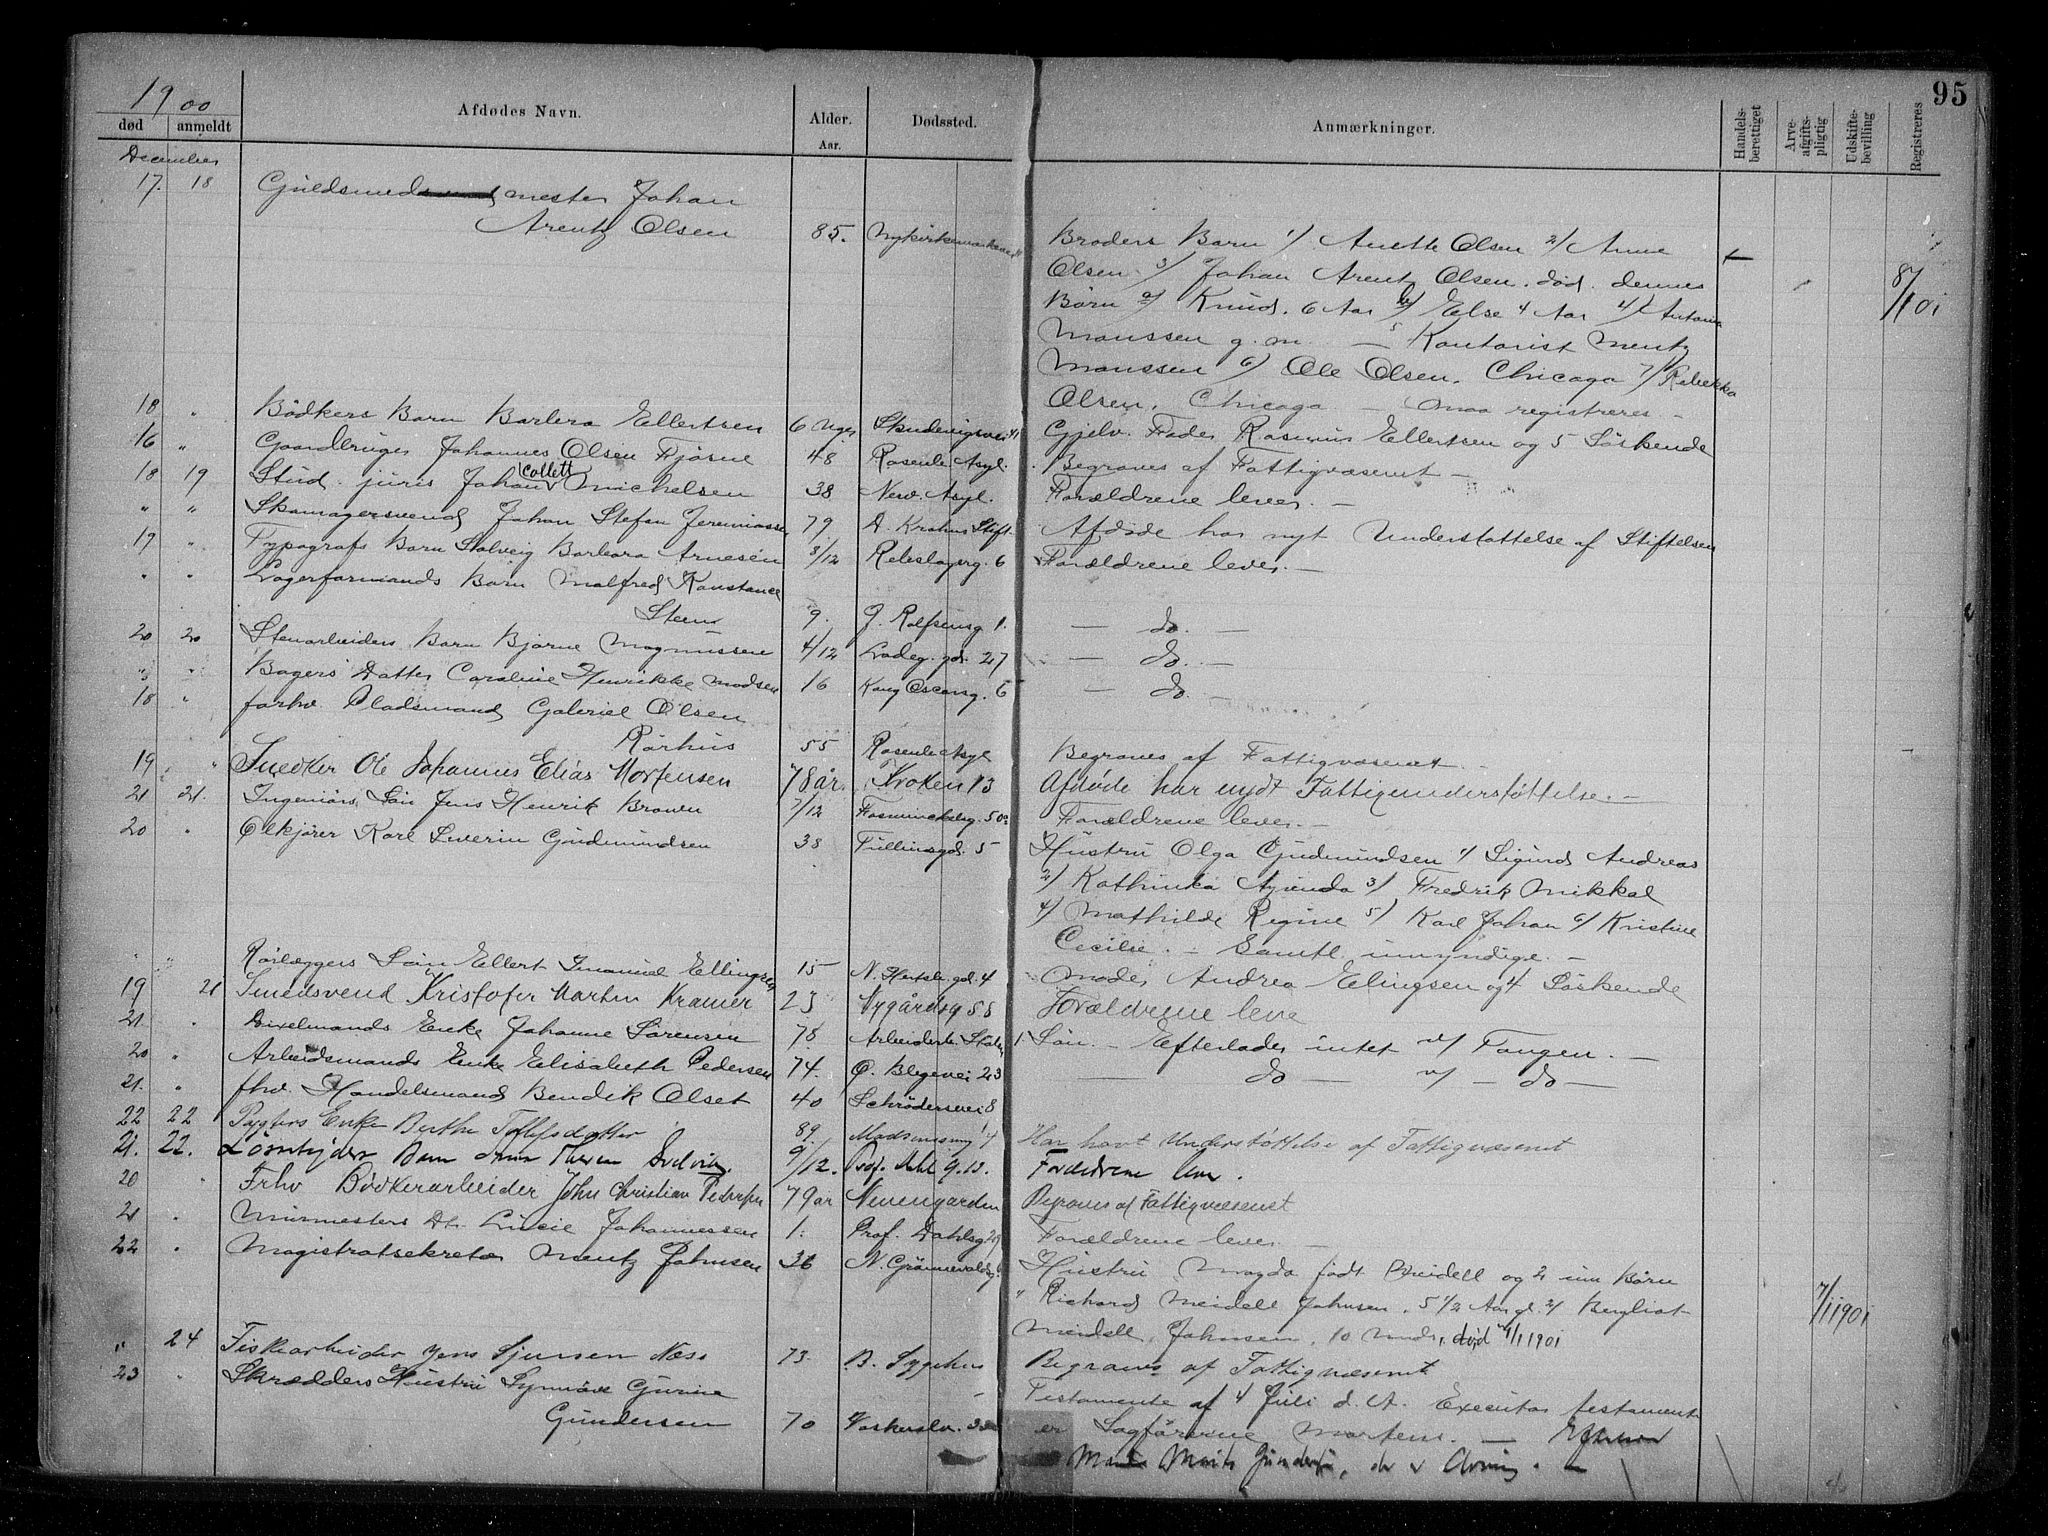 95
1900
død anmeldt Afdødes Navn. Alder. Aar. Dødssted. Anmærkninger. Handels-berettiget Arve-afgifts-pligtig Udskifte-bevilling Registreres
December
17. 18 Guldsmedmester Johan
Arentz Olsen 85.
Broders Barn 1/ Anette Olsen 2/ Anne
Olsen 3/ Johan Arentz Olsen. død. dennes
Børn a/ Knud. 6 Aar b/ Else 4 Aar 4/ Antonia
Monssen g. m. — Kontorist Mentz
Monssen 6/ Ole Olsen, Chicago 7/ Rebekka
Olsen, Chicago — maa registreres —
8/1 01
18 " Bødkers Barn Barbera Ellertsen 6 Uger Skudevigsvei Gjelv. Fader Rasmus Ellertsen og 5 Søskende
16 " Gaardbruger Johannes Olsen Fjøsne 48 Rosenb. Asyl. Begraves af Fattigvæsenet —
18 19 Stud. juris Johan Collett Michelsen 38 Nev. Asyl. Forældrene lever. —
" " Skomagersvend Johan Stefan Jeremiassen 79 D. Krohns Stift. Afdøde har nyt Understøttelse af Stiftelsen
19 " Typografs Barn Solveig Barbara Arnesen 8/12 Rebslagerg. 6 Forældrene lever. —
" " Lagerformands Barn Malfred Konstance
Steen 9. J. Rolfsensg 1. — do. —
20 20 Stenarbeiders Barn Bjarne Magnussen 4/12 Ladeg. gd. 27 — do. —
" " Bagers Datter Caroline Henrikke Madsen 16 Kong Oscarsg. 6 — do. —
18 " forhv. Pladsmand Gabriel Olsen
Rørhus 55 Rosenb. Asyl Begraves af Fattigvæsenet. —
19 " Snedker Ole Johannes Elias Mortensen 78 år. Kroken 13 Afdøde har nydt Fattigunderstøttelse. —
21 21. Ingeniørs Søn Jens Henrik Broun 7/12 Forældrene lever. —
20 " Ølkjører Karl Severin Gudmundsen 38 Tullinsgd. 5 Hustru Olga Gudmundsen 1/ Sigurd Andreas
2/ Kathinka 3/ Fredrik Mikkal
4/ Mathilde Regine 5/ Karl Johan 6/ Kristine
Cecilie. — Samtl. umyndige. —
" " Rørlæggers Søn Ellert Imanuel Ellingsen 15 N. gd. 4 Moder Andrea Elingsen og 4 Søskende
19 21 Smedsvend Kristofer Martin Kramer 23 Nygårdsg 58 Forældrene leve
21. " Enke Johanne Sørensen 78 1 Søn. — Efterlader intet v/ Tangen. —
20 " Arbeidsmands Enke Elisabeth Pedersen 74. Ø. Blegevei 23 — do — v/ — do —
21. " fhv. Handelsmand Bendik Olset 40 Schrødersvei 8
22 22 Enke Berthe Tollefsdatter 89. Har havt Understøttelse af Fattigvæsenet
21. 22. Barn 9/12. Forældrene leve.
20 " Frhv Bødkerarbeider John Christian Pedersen 79 ar Nevengaarden Begraves af Fattigvæsenet
21 " Murmesters Dt. Lucie Johannessen 1. Prof. Dahlsg 29 Forældrene lever —
22 " Magistratsekretær Mentz Johnsen 36 N. Grønnevoldsg. Hustru Magda født Meidell og 2 um Børn
" Richard Meidell Johnsen, 5 1/2 Aar gl. 2/ Bergliot
Meidell Johnsen, 10 Mndr, død 4/1 1901
7/1 1901
" 24 Fiskearbeider Jens Sjursen Næss 73. B. Sygehus Begraves af Fattigvæsenet
23 " Skrædders Hustru Synnøve Gurine
Gundersen 70
Testamente af 4 Juli d. A. Executor testament
er Sagførerne Mortens. —
Marit Gundersen, der